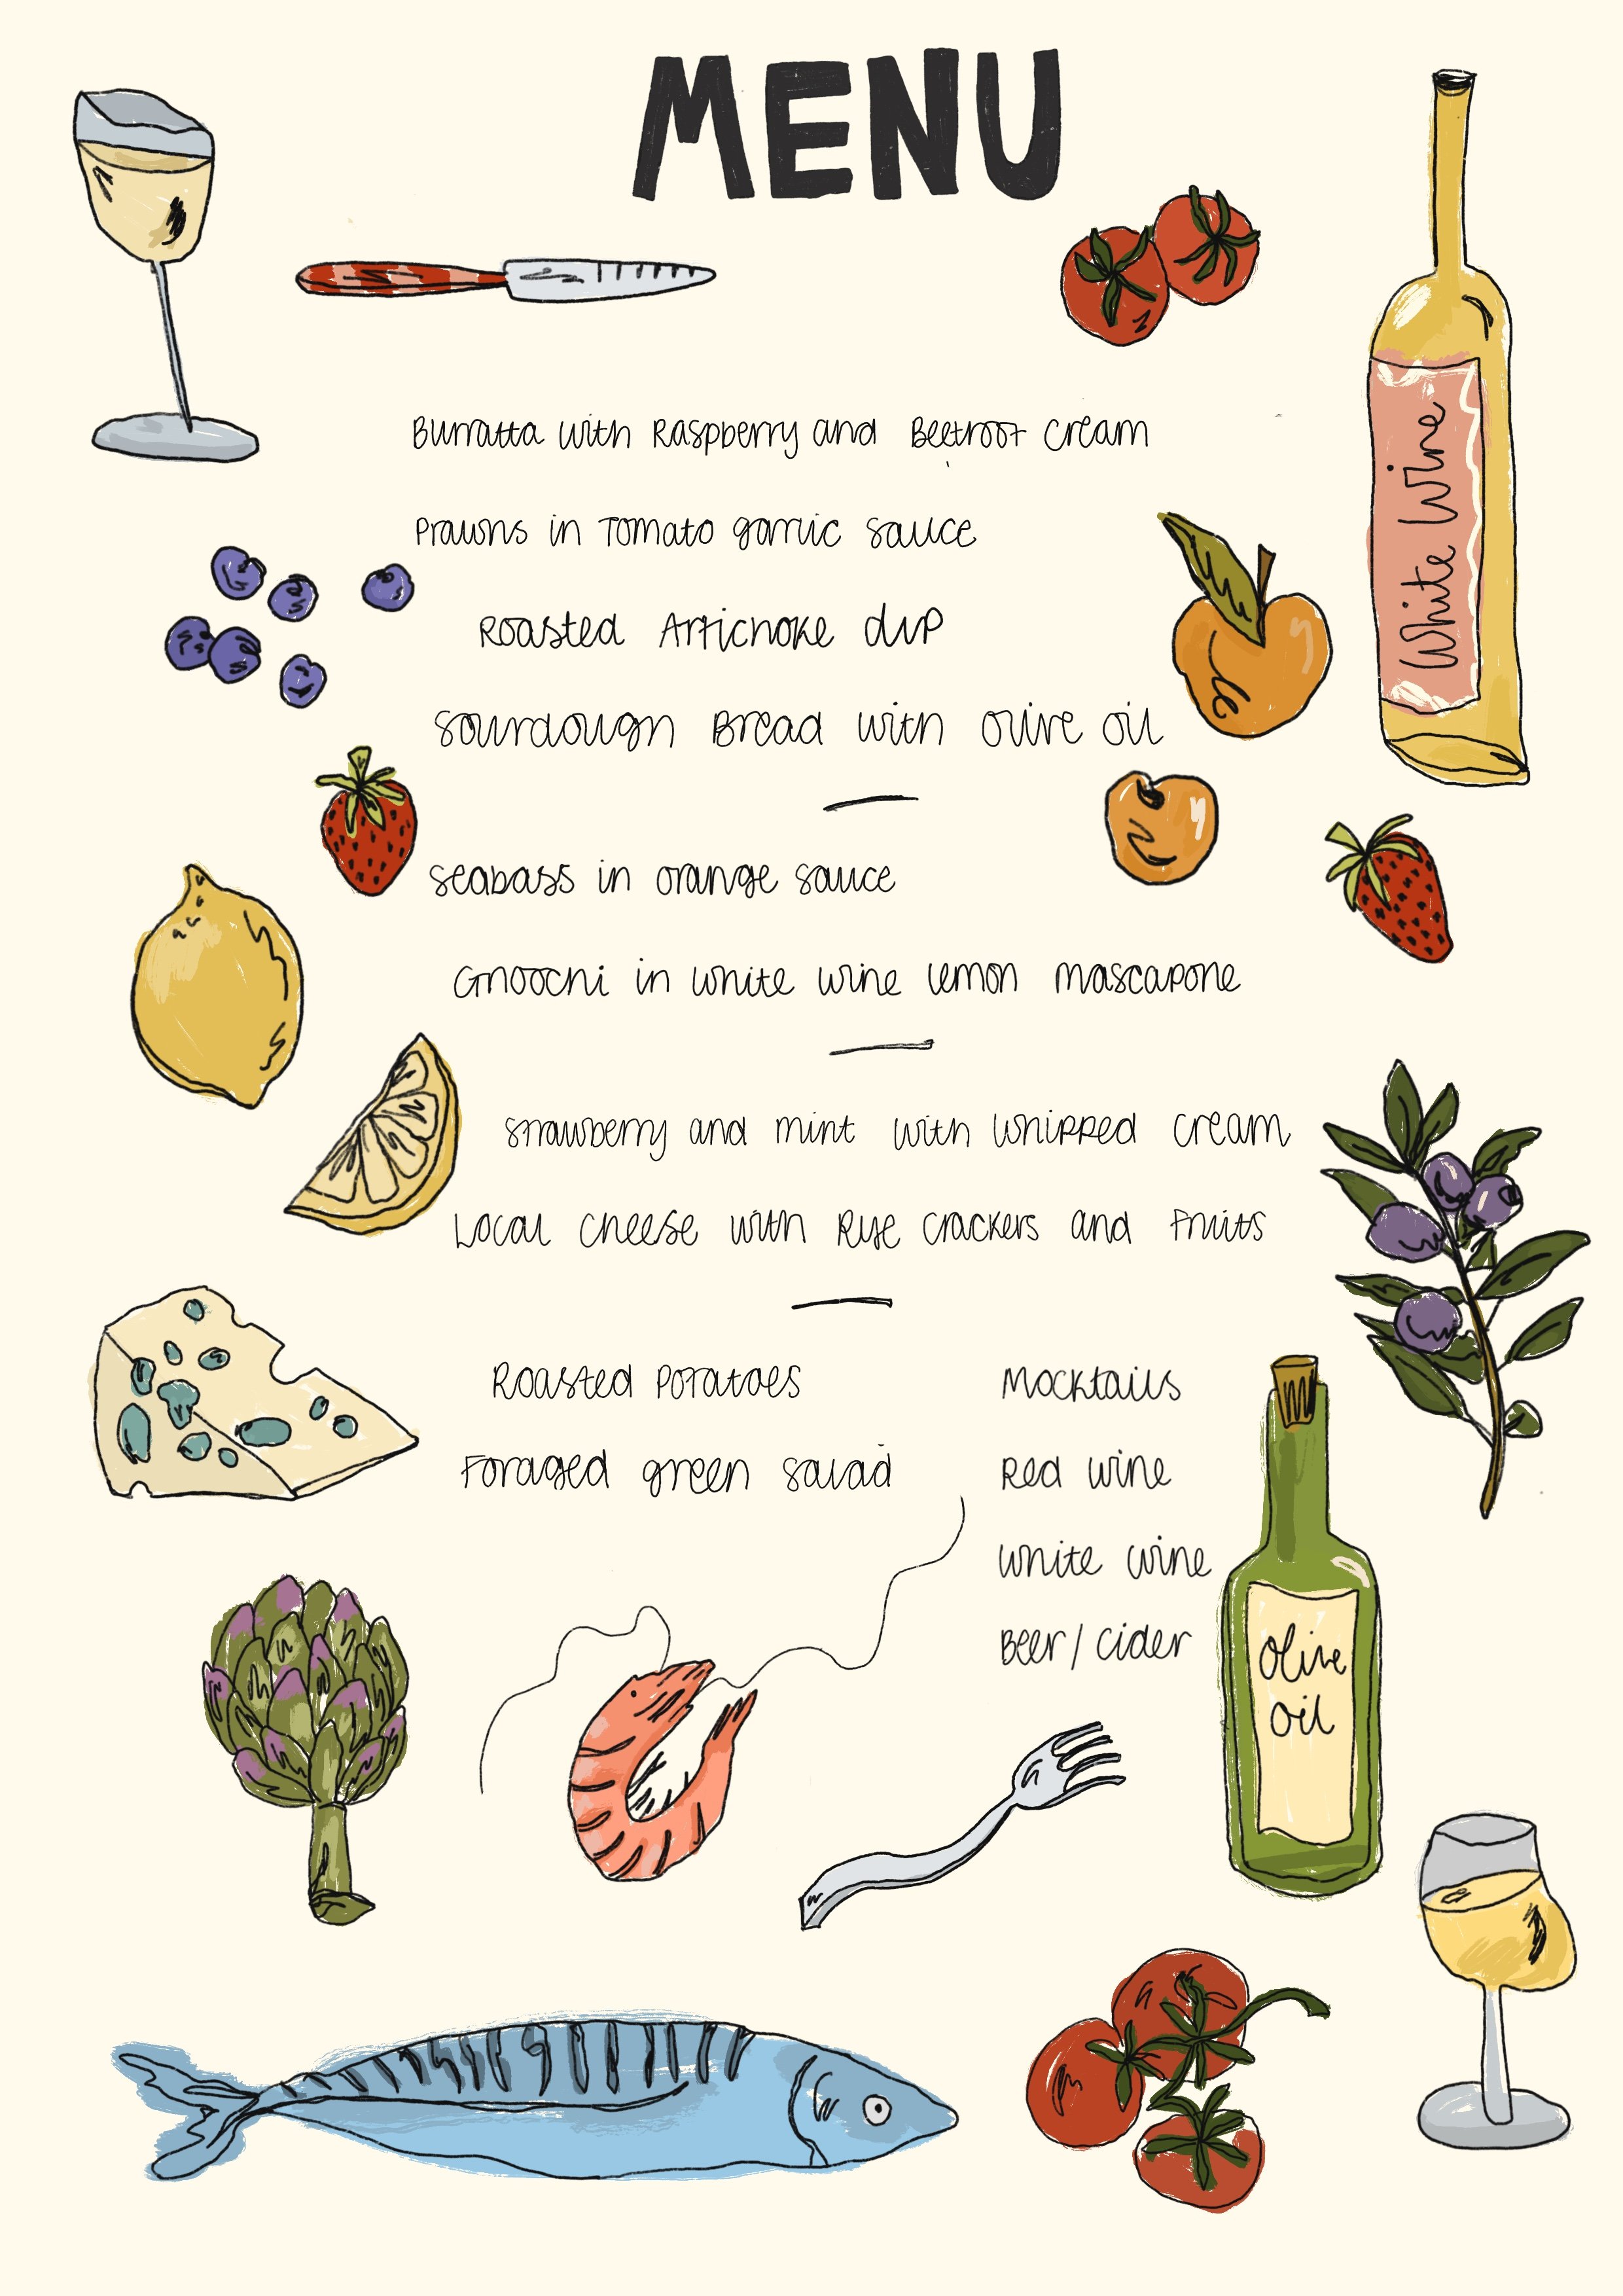 MENU
Burratta with Raspberry and Beetroot cream
Prawns in Tomato garlic sauce
Roasted Artichoke dip
Sourdough Bread with olive oil
Seabass in orange sauce
Gnoochi in white wine lemon mascapone
Strawberry and mint with whipped cream
Local cheese with Rye crackers and fruits
Roasted Potatoes
Foraged green salad
Mocktails
Red wine
White wine
Beer/cider
White Wine
Olive
oil